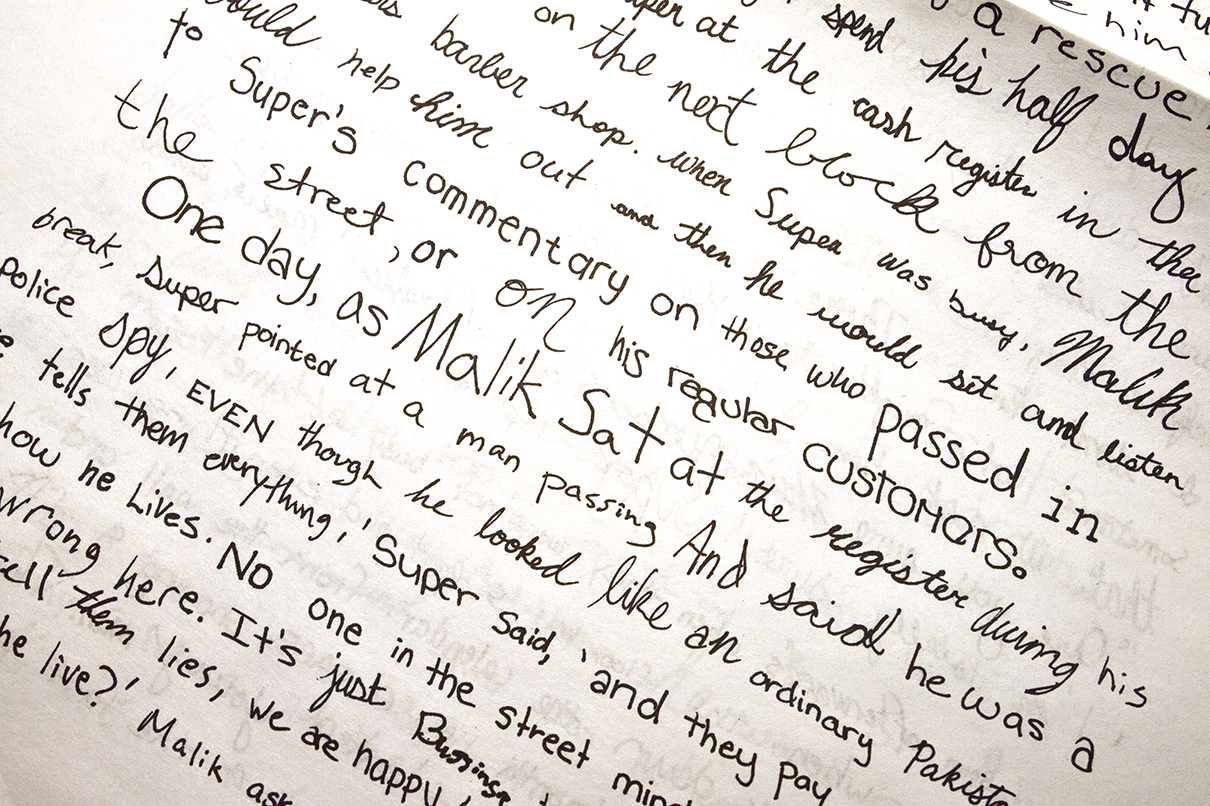 him
a rescue
spend his half day
at the cash register in the
on the next block from the
barber shop. When Super was busy, Malik
would help him out and then he would sit and listen
to Super's commentary on those who passed in
the street, or on his regular customers.
One day, as Malik Sat at the register during his
break, Super pointed at a man passing And said he was a
police spy, EVEN though he looked like an ordinary Pakista
tells them everything,' Super said, 'and they pay
how he Lives. No one in the street mind
wrong here. It's just
tell them lies, we are happy
he live?' Malik ask